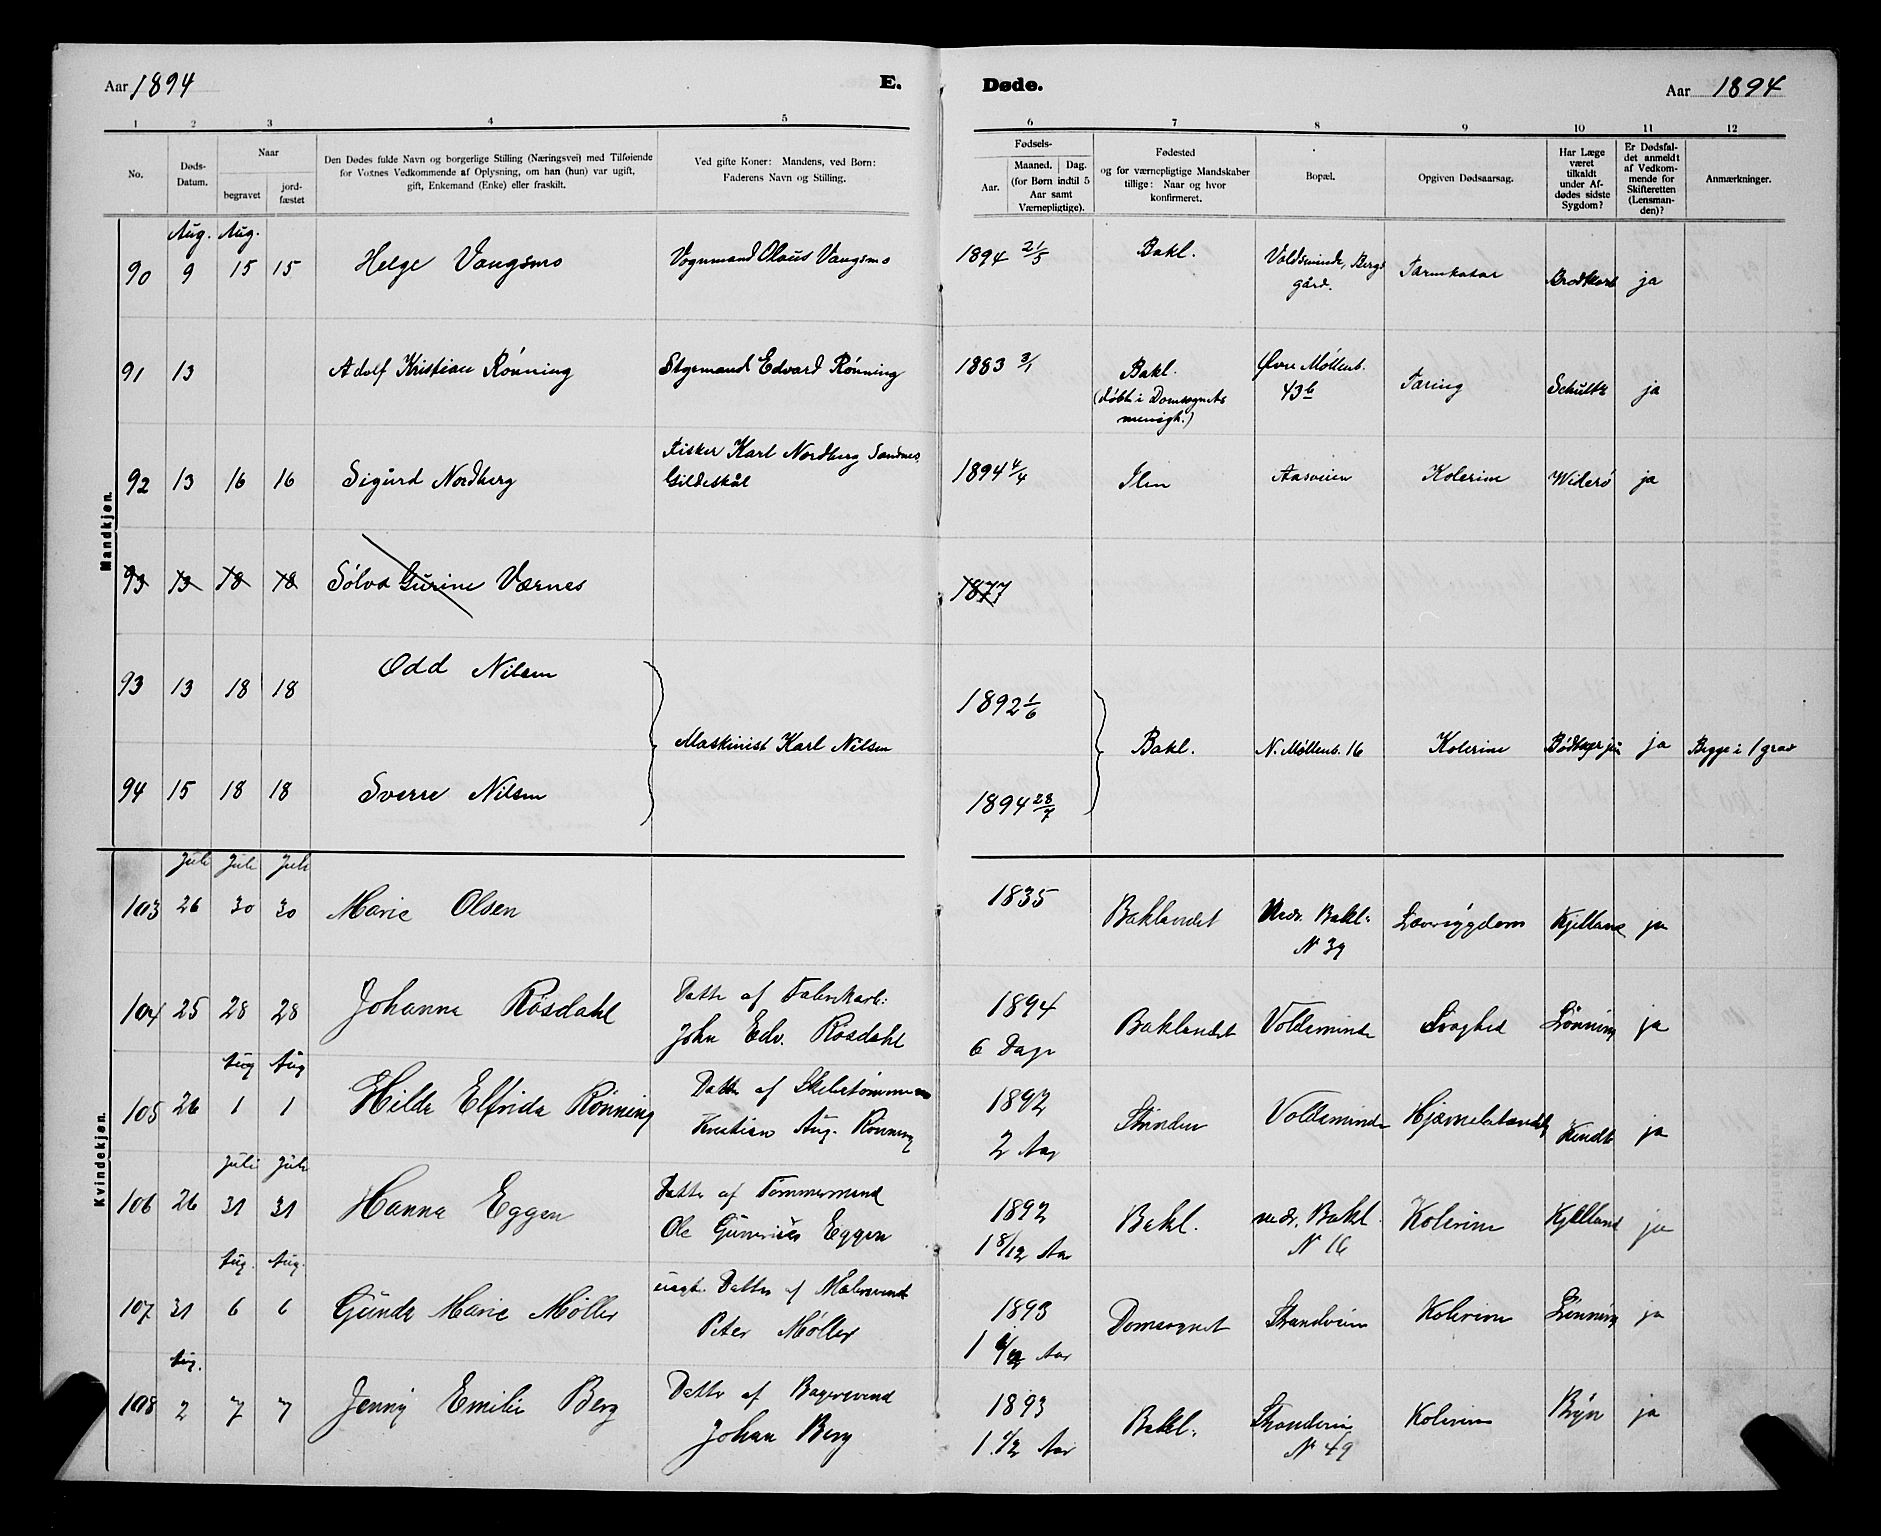 Aar 1894 E. Døde. Aar 1894
1 2 3 4 5 6 7 8 9 10 11 12
No. Døds-Datum. Naar begravet jordfæstet Den Dødes fulde Navn og borgerlige Stilling (Næringsvei) med Tilføiende for Voxnes Vedkommende af Oplysning, om han (hun) var ugift, gift, Enkemand (Enke) eller fraskilt. Ved gifte Koner: Mandens, ved Børn: Faderens Navn og Stilling. Fødsels- Aar. Maaned. Dag. (for Børn indtil 5 Aar samt Værnepligtige). Fødested og for værnepligtige Mandskaber tillige: Naar og hvor konfirmeret. Bopæl. Opgiven Dødsaarsag. Har Læge været tilkaldt under Afdødes sidste Sygdom? Er Dødsfaldet anmeldt af Vedkommende for Skifteretten (Lensmanden)? Anmærkninger.
Mandkjøn.
Aug. Aug.
90 9 15 15 Helge Vangsmo Vognmand Olaus Vangsmo 1894 21/5 Bakl. Voldsminde, Bergsgård. Tarmkatar Brodtkorb ja
91 13 Adolf Kristian Rönning Styrmand Edvard Rönning 1883 3/1 Bakl. (døbt i Domsognets menigh.) Øvre Möllenb. 43b Tæring Schultz ja
92 13 16 16 Sigurd Nordberg Fisker Karl Nordberg Sandnes Gildeskål 1894 4/4 Ilen Aasveien Kolerine Widerö ja
93 13 18 18 Sølva Gurine Værnes 1877
93 13 18 18 Odd Nilsen 1892 1/6
Maskinist Karl Nilsen Bakl. N. Møllenb. 16 Kolerine Bødtker jun ja Begge i 1 grav
94 15 18 18 Sverre Nilsen 1894 28/7
Kvindekjøn.
Juli Juli Juli
103 26 30 30 Marie Olsen 1835 Baklandet Nedr. Bakl. N 39 Kjelland ja
104 25 28 28 Johanna Røsdahl Datter af John Edv. Røsdahl 1894 6 Dage Baklandet Voldsminde Svaghed Lönning ja
Aug Aug
105 26 1 1 Hilda Elfrida Rønning Datter af Skibstømmerm Kristian Aug. Rønning 1892 2 Aar Strinden Voldsminde Kindt ja
Juli Juli
106 26 31 31 Hanna Eggen Datter af Tømmermand Ole Eggen 1892 1 8/12 Aar Bakl. nedr. Bakl. N 16 Kolerine Kjelland ja
Aug. Aug.
107 31 6 6 Gunda Marie Møller uægt. Datter af Malersvend Peter Møller 1893 1 Aar Domsognet Strandveien Kolerine Lönning ja
Aug.
108 2 7 7 Jenny Emilie Berg Datter af Bagersvend Johan Berg 1893 1 1/2 Aar Bakl. Strandveien N 49 Kolerine Bryn ja